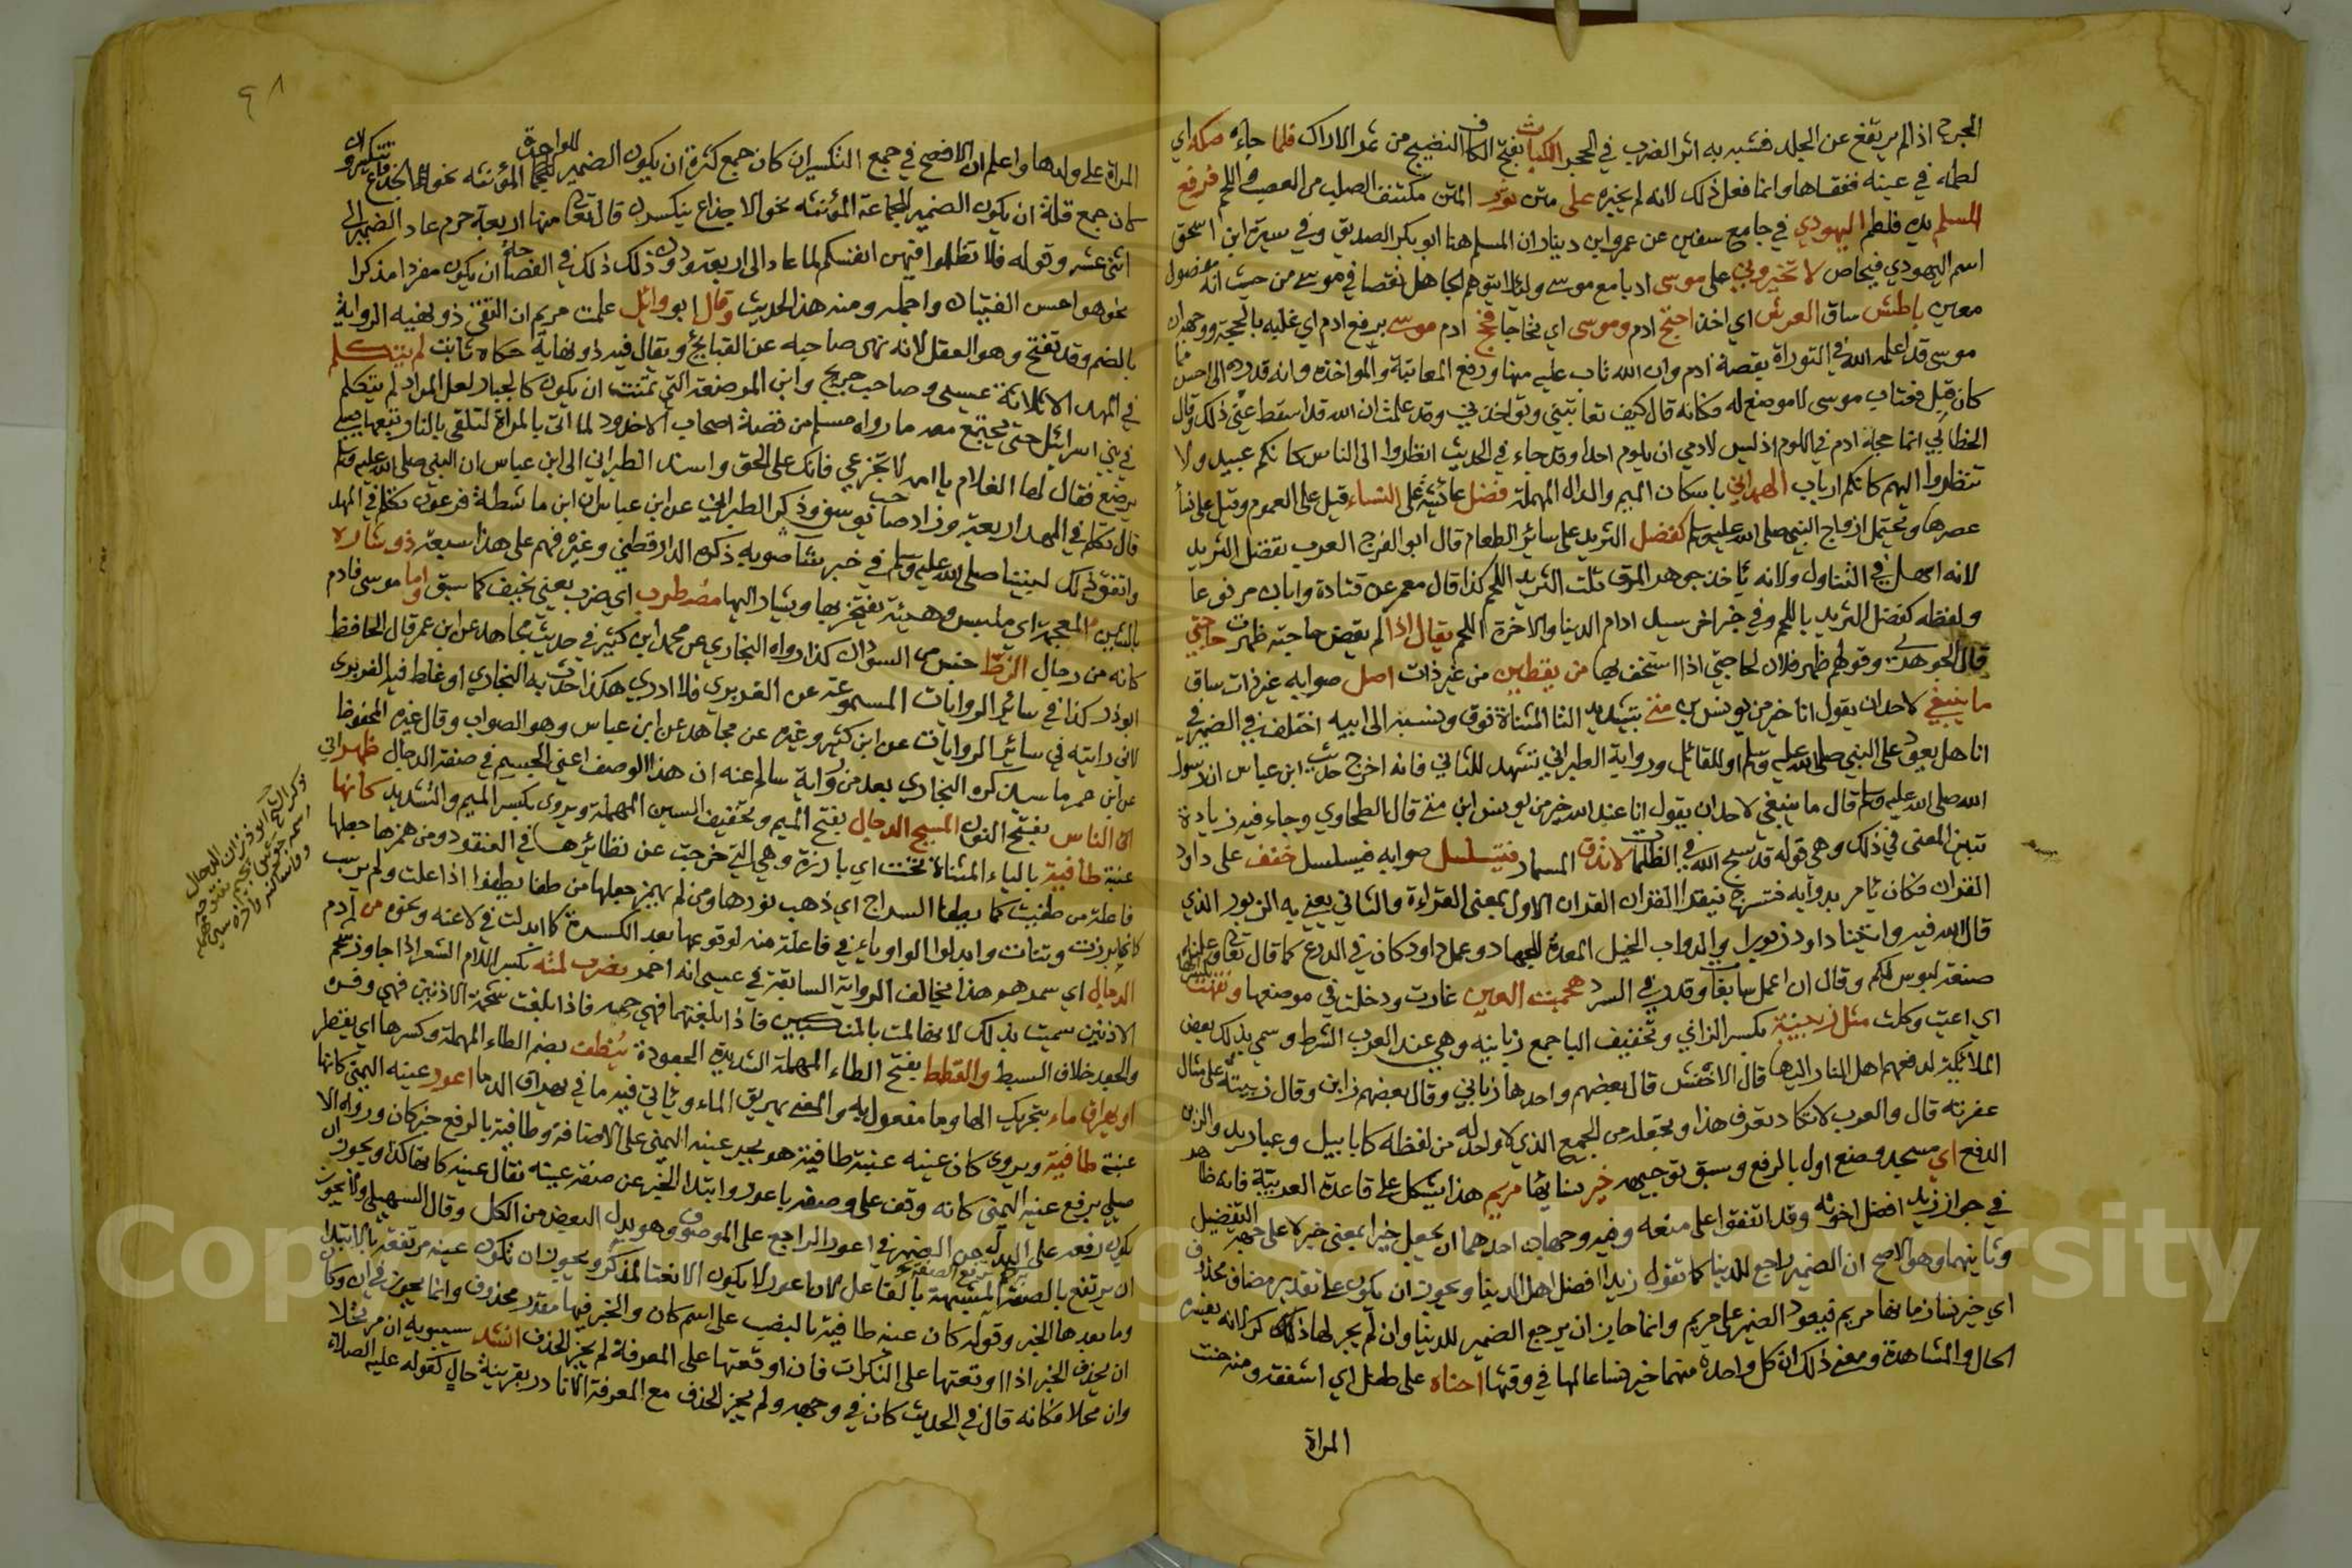 الجرح اذا لم يرتفع عن الجلد فشبه به اثر الضرب في الحجر الكباث بفتح الكاف النضيج من ثمر الاراك فلما جاءه صكه اي
لطمه في عينه ففقاها وانما فعل ذلك لانه لم يخيره على متن ثور المتن مكتنف الصلب من العصب واللحم فرفع
المسلم يده فلطم اليهودي في جامع سفين عن عمرو ابن دينار ان المسلم هنا ابو بكر الصديق وفي سيرة ابن اسحق
اسم اليهودي فنحاص لا تخيروني على موسى ادبا مع موسى ولئلا يتوهم الجاهل نقصا في موسى من حيث انه مفضول
معين باطش ساق العرش اي اخذ احتج ادم وموسى اي تحاجا فحج ادم موسى برفع ادم اي غلبه بالحجة ووجهه ان
موسى قد اعلمه الله في التوراة بقصة ادم وان الله تاب عليه منها ورفع المعاتبة والمواخذة وانه قدرده الى احسن مما
كان قبل فعتاب موسى لا موضع له فكانه قال كيف تعاتبني وتواخذني وقد علمت ان الله قد اسقط عني ذلك وقال
الخطابي انما حجة ادم في اللوم اذ ليس لادمي ان يلوم احدا وقد جاء في الحديث انظروا الى الناس كانكم عبيد ولا
تنظروا اليهم كانكم ارباب الهمداني باسكان الميم والدال المهملة فضل عائشة على النساء قيل على العموم وقيل على نسأ
عصرها ويحتمل ازواج النبي صلى الله عليه وسلم كفضل الثريد على سائر الطعام قال ابو الفرج العرب تفضل الثريد
لانه اسهل في التناول ولانه ياخذ جوهر المرق ثلت الثريد اللحم كذا قال معمر عن قتادة وابان مرفوعا
ولفظه كفضل الثريد باللحم وفي خبر اخر سيد ادام الدنيا والاخرة اللحم يقال اذا لم يقض حاجته ظهرت حاجتي
قال الجوهري وقولهم ظهر فلان لحاجتي اذا استخف بها من يقطين من غير ذات اصل صوابه غير ذات ساق
ما ينبغي لاحد ان يقول انا خير من يونس بن متى بتشديد التا المثناة فوق ونسبه الى ابيه اختلف في الضمير في
انا هل يعود على النبي صلى الله عليه وسلم او للقائل ورواية الطبراني تشهد للثاني فانه اخرج حديث ابن عباس ان رسول
الله صلى الله عليه وسلم قال ما ينبغي لاحد ان يقول انا عند الله خير من يونس ابن متى قال الطحاوي وجاء فيه زيادة
تبين المعنى في ذلك وهي قوله قد سبح الله في الظلمات لا تدق المسمار فيتسلسل صوابه فيسلسل خفف على داود
القران فكان يامر بدوابه فتسرج فيقرا القران القران الاول بمعنى القراءة والثاني يعني به الزبور الذي
قال الله فيه واتينا داود زبورا والدواب الخيل المعدة للجهاد وعمل داود كان في الدرع كما قال تعالى وعلمناه
صنعة لبوس لكم وقال ان اعمل سابغات وقدر في السرد هجمت العين غارت ودخلت في موضعها ونفهت
اي اعيت وكلت مثل زبينة بكسر الزاني وتخفيف اليا جمع زبانيه وهي عند العرب الشرط وسمي بذلك بعض
الملائكة لدفعهم اهل النار اليها قال الاخفش قال بعضهم واحدها زباني وقال بعضهم زابن وقال زبينة على مثال
عفرته قال والعرب لا تكاد تعرف هذا وتجعله من الجمع الذي لا واحد له من لفظه كابابيل وعباديد والزبن
الدفع اي مسجد وضع اول بالرفع وسبق توجيهه خير نسائها مريم هذا يشكل على قاعدة العربية فانه ظاهر
في جواز زيد افضل اخوته وقد اتفقوا على منعه وفيه وجهان احدهما ان يجعل خيرا بمعنى خبر لا على جهة التفضيل
وثانيهما وهو الاصح ان الضمير راجع للدنيا كما تقول زيدا افضل اهل الدنيا ويجوز ان يكون على تقدير مضاف محذوف
اي خير نسا زمانها مريم فيعود الضمير على مريم وانما جاز ان يرجع الضمير للدنيا وان لم يجر لها ذكر لانه يفسره
الحال والمشاهدة ومعنى ذلك ان كل واحدة منهما خير نسا عالمها في وقتها احناه على طفل اي اشفقه ومنه حنت
المراة
٩٨
المراة على ولدها واعلم ان الافصح في جمع التكسير ان كان جمع كثرة ان يكون الضمير للواحدة المؤنثه نحو الجذوع تنكسر وان
كان جمع قلة ان يكون الضمير للجماعة المؤنثه نحو الاجذاع ينكسرن قال تعالى منها اربعة حرم عاد الضمير الى
اثنى عشر وقوله فلا تظلموا فيهن انفسكم لما عاد الى اربعة ودون ذلك ذلك في الفصاحة ان يكون مفردا مذكرا
نحو هو احسن الفتيان واجمله ومنه هذا الحديث وقال ابو وائل علمت مريم ان التقي ذو نهيه الرواية
بالضم وقد تفتح وهو العقل لانه نهى صاحبه عن القبايح ويقال فيه ذو نهاية حكاه ثابت لم يتكلم
في المهد الا ثلاثة عيسى وصاحب جريج وابن المرضعة التي تمنت ان يكون كالجبار لعل المراد لم يتكلم
في بني اسرائيل حتى يجتمع معه ما رواه مسلم من قصة اصحاب الاخدود لما اتى بالمراة لتلقى بالنار ومعها صبي
يرضع فقال لها الغلام يا امه لا تجزعي فانك على الحق واسند الطبراني الى ابن عباس ان النبي صلى الله عليه وسلم
قال تكلم في المهد اربعة وزاد صاحب يوسف وذكر الطبراني عن ابن عباس ان ابن ماشطة فرعون تكلم في المهد
واتفق ذلك لنبينا صلى الله عليه وسلم في خبر ذكره الدارقطني وغيره فهم على هذا سبعة ذو شاره
بالشين المعجمة اي ملبس وهيئة يفتخر بها ويشار اليها مضطرب اي ضرب يعني نحيف كما سبق واما موسى فادم
كانه من رجال الزط جنس من السودان كذا رواه البخاري عن محمد ابن كثير في حديث مجاهد عن ابن عمر قال الحافظ
ابو ذر كذا في سائر الروايات المسموعة عن الفربري فلا ادري هكذا حدث به البخاري او غلط فيه الفربري
لاني رايته في سائر الروايات عن ابن كثير وغيره عن مجاهد عن ابن عباس وهو الصواب وقال غيره المحفوظ
عن ابن عمر ما سيذكره البخاري بعد من رواية سالم عنه ان هذا الوصف اعني الجسيم في صفة الدجال ظهراني
الناس بفتح النون المسيح الدجال بفتح الميم وتخفيف السين المهملة ويروى بكسر الميم والتشديد كانها
عنبة طافية بالياء المثناة تحت اي بارزة وهي التي خرجت عن نظائرها في العنقود ومن همزها جعلها
فاعلة من طفيت كما يطفا السراج اي ذهب نورها ومن لم يهمز جعلها من طفا يطفوا اذا علت ولم يرسب
كانها برزت ونتات وابدلوا الواو ياء في فاعلة منه لوقوعها بعد الكسرة كما ابدلت في لاغيه ونحوه من ادم
الرجال اي سمره وهذا يخالف الرواية السابقة في عيسى انه احمر تضرب لمته بكسر اللام الشعر اذا جاوز شحم
الاذنين سميت بذلك لانها المت بالمنكبين فاذا بلغتهما فهي جمه فاذا بلغت شحمة الاذنين فهي وفره
والجعد خلاف السبط والقطط بفتح الطاء المهملة الشديد الجعودة ينطف بضم الطاء المهملة وكسرها اي يقطر
او يهراق ماء بتحريك الها وما مفعول به والمعنى يهريق الماء وثاني فيه ما في يهراق الدما اعور عينه اليمنى كانها
عنبة طافية ويروى كان عينه عنبة طافية هو بجر عينه اليمنى على الاضافة وطافية بالرفع خبر كان ورواه الا
صيلي برفع عينه اليمنى كانه وقف على وصفه باعور وابتدا الخبر عن صفة عينه فقال عينه كانها كذا ويجوز ان
يكون رفعه على البدل من الضمير في اعور الراجع على الموصوف وهو بدل البعض من الكل وقال السهيلي ولا يجوز
ان يرتفع بالصفة المشبهة بالفاعل لان اعور لا يكون الا نعتا لمذكر ويجوز ان تكون عينه مرتفعة بالابتدا
وما بعدها الخبر وقوله كان عينه طافية بالنصب على اسم كان والخبر فيها مقدر محذوف وانما يجوز في ان وكان
ان يحذف الخبر اذا اوقعتها على النكرات فان اوقعتها على المعرفة لم يجز الحذف انشد سيبويه ان مرتحلا
وان محلا فكانه قال في الحديث كان في وجهه ولم يجز الحذف مع المعرفة الا نادر بقرينة حال كقوله عليه الصلاة
Copyright © King Saud University